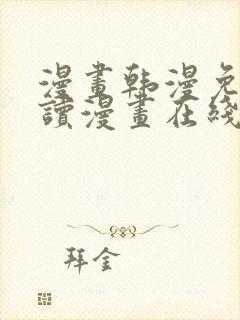 漫畫韩漫免
讀漫畫在綫
拜金